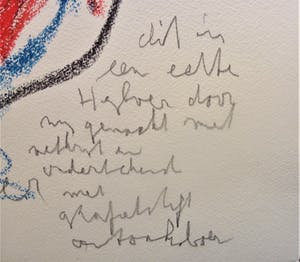 dit is
een echte
Heyboer door
mij gemaakt met
en
ondertekend
met
grafietstift